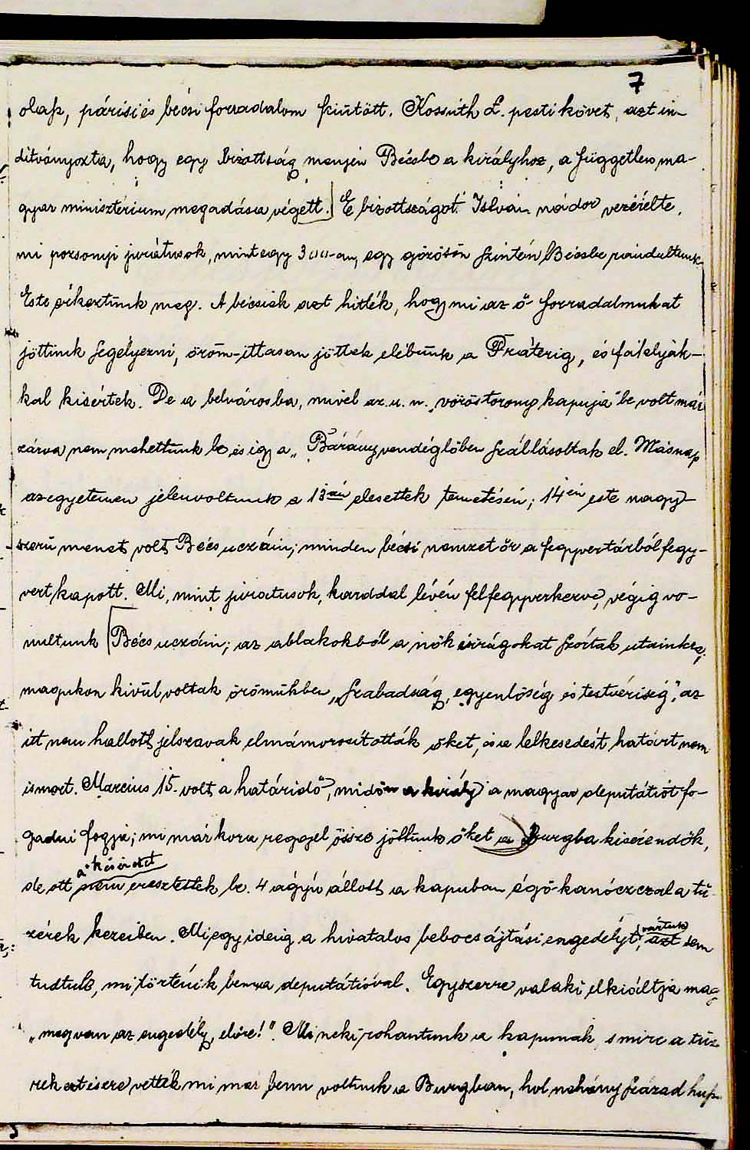 7
olasz, párisi és bécsi forradalom kiütött. Kossuth L. pesti követ, azt in-
ditványozta, hogy egy bizottság menjen Bécsbe a királyhoz, a független ma-
gyar ministérium megadása végett. E bizottságot István nádor vezérelte,
mi pozsonyi jurátusok, mint egy 300-an, egy gőzösön szintén Bécsbe rándultunk
Este érkeztünk meg. A bécsiek azt hitték, hogy mi az ő forradalmukat
jöttünk segélyezni, öröm-ittasan jöttek elébünk a Práterig, és fáklyák-
kal kisértek. De a belvárosba, mivel az u. n. „vöröstorony kapuja" be volt már
zárva nem mehettünk be és igy a „Bárány vendéglőben szállásoltak el. Másnap
az egyetemen jelenvoltunk a 13án elesettek temetésén; 14én este nagy-
szerü menet volt Bécs uczáin; minden bécsi nemzetőr a fegyvertárból fegy-
vert kapott. Mi, mint jurátusok, karddal lévén felfegyverkezve, végig vo-
nultunk Bécs uczáin; az ablakokból a nők virágokat szórtak utainkra,
magukon kivül voltak örömükben, „Szabadság, egyenlőség és testvériség", az
itt nem hallott jelszavak elmámorosították őket, és a lelkesedést határt nem
ismert. Március 15. volt a határidő, midőn a király a magyar deputátiót fo-
gadni fogja; mi már kora reggel össze jöttünk őket a Burgba kisérendők,
de ott a kíséretet nem eresztették be. 4 ágyú állott a kapuban égő kanóczczal a tü-
zérek kezeiben. Mi egy ideig a hivatalos bebocsájtási engedélyt vártuk, azt sem
tudtuk, mi történik benn a deputátióval. Egyszerre valaki elkiáltja mag
„megvan az engedély, előre!" Mi neki rohantunk a kapunak, s mire a tüz
rek észre vették mi már benn voltunk a Burgban, hol néhány század hup